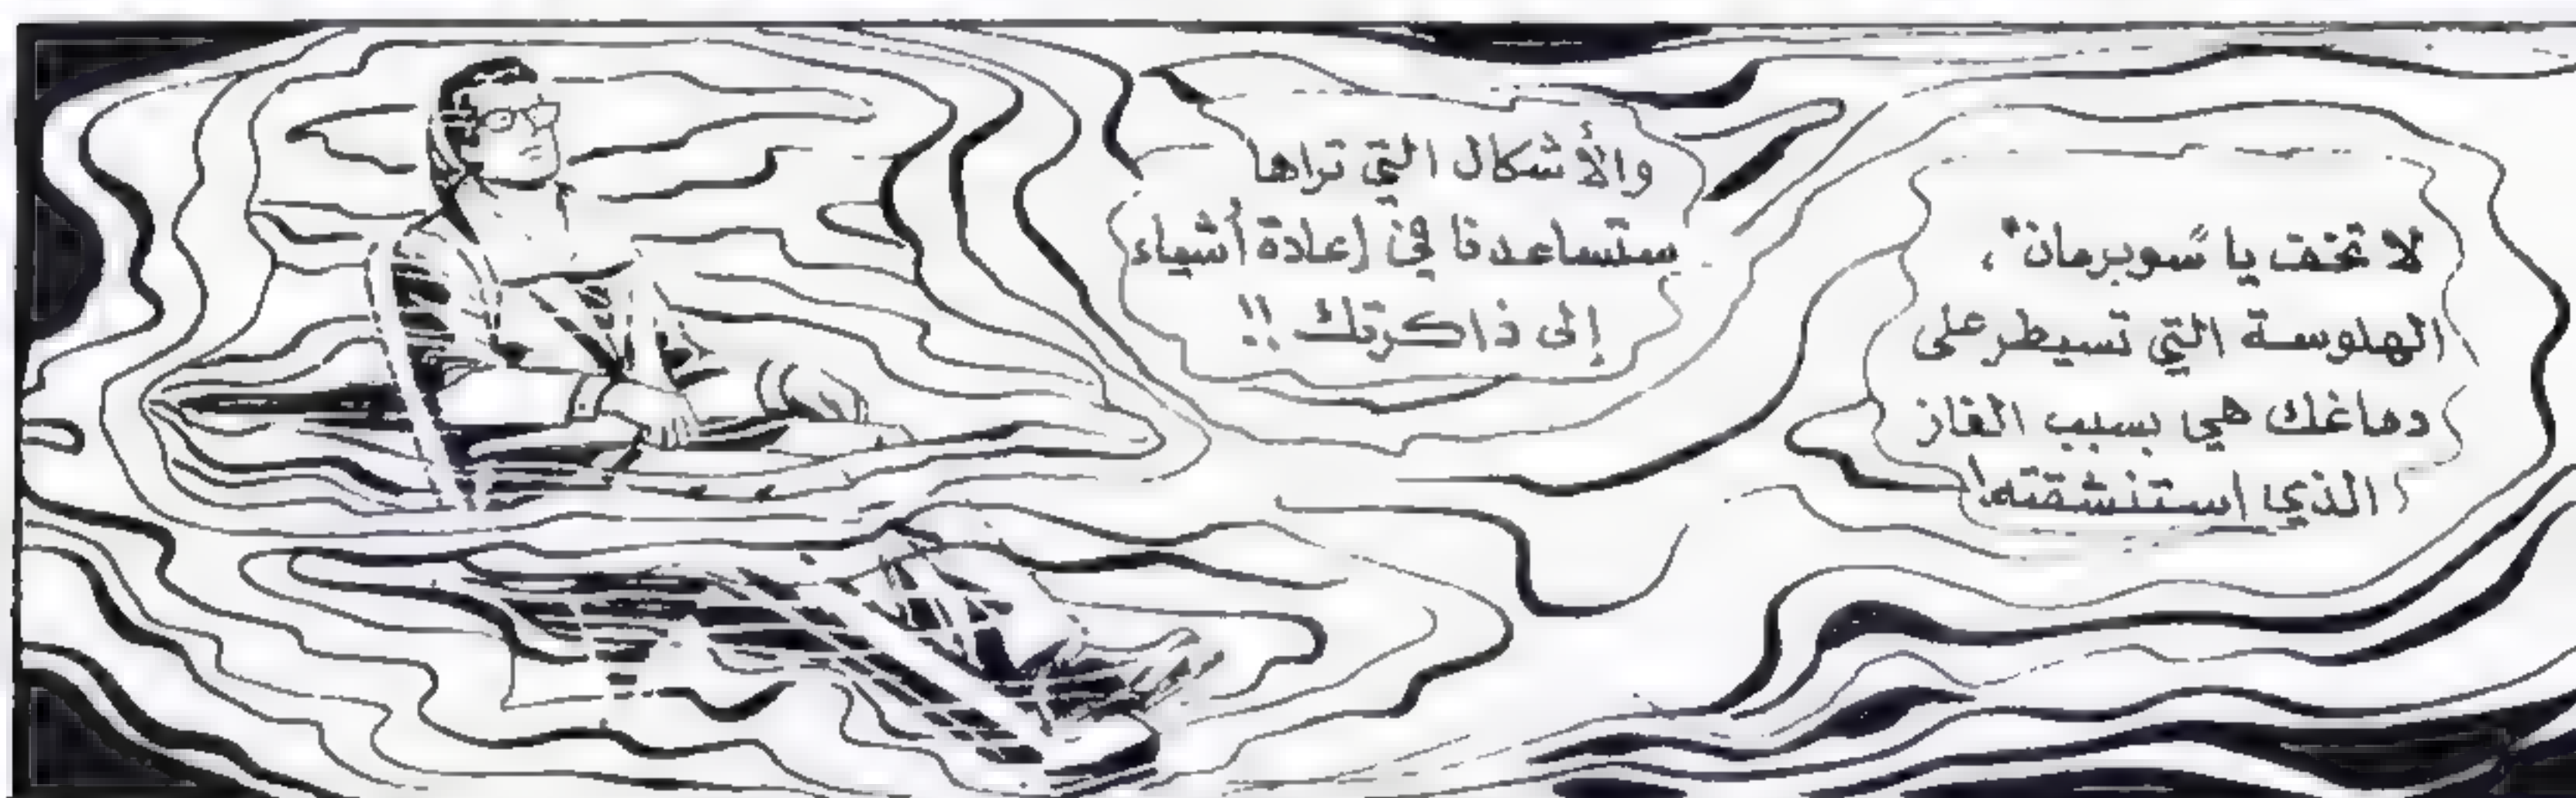 لا تخف يا "سوبرمان"،
الهلوسة التي تسيطر على
دماغك هي بسبب الغاز
الذي إستنشقته!
والأشكال التي تراها
ستساعدنا في إعادة أشياء
إلى ذاكرتك !!